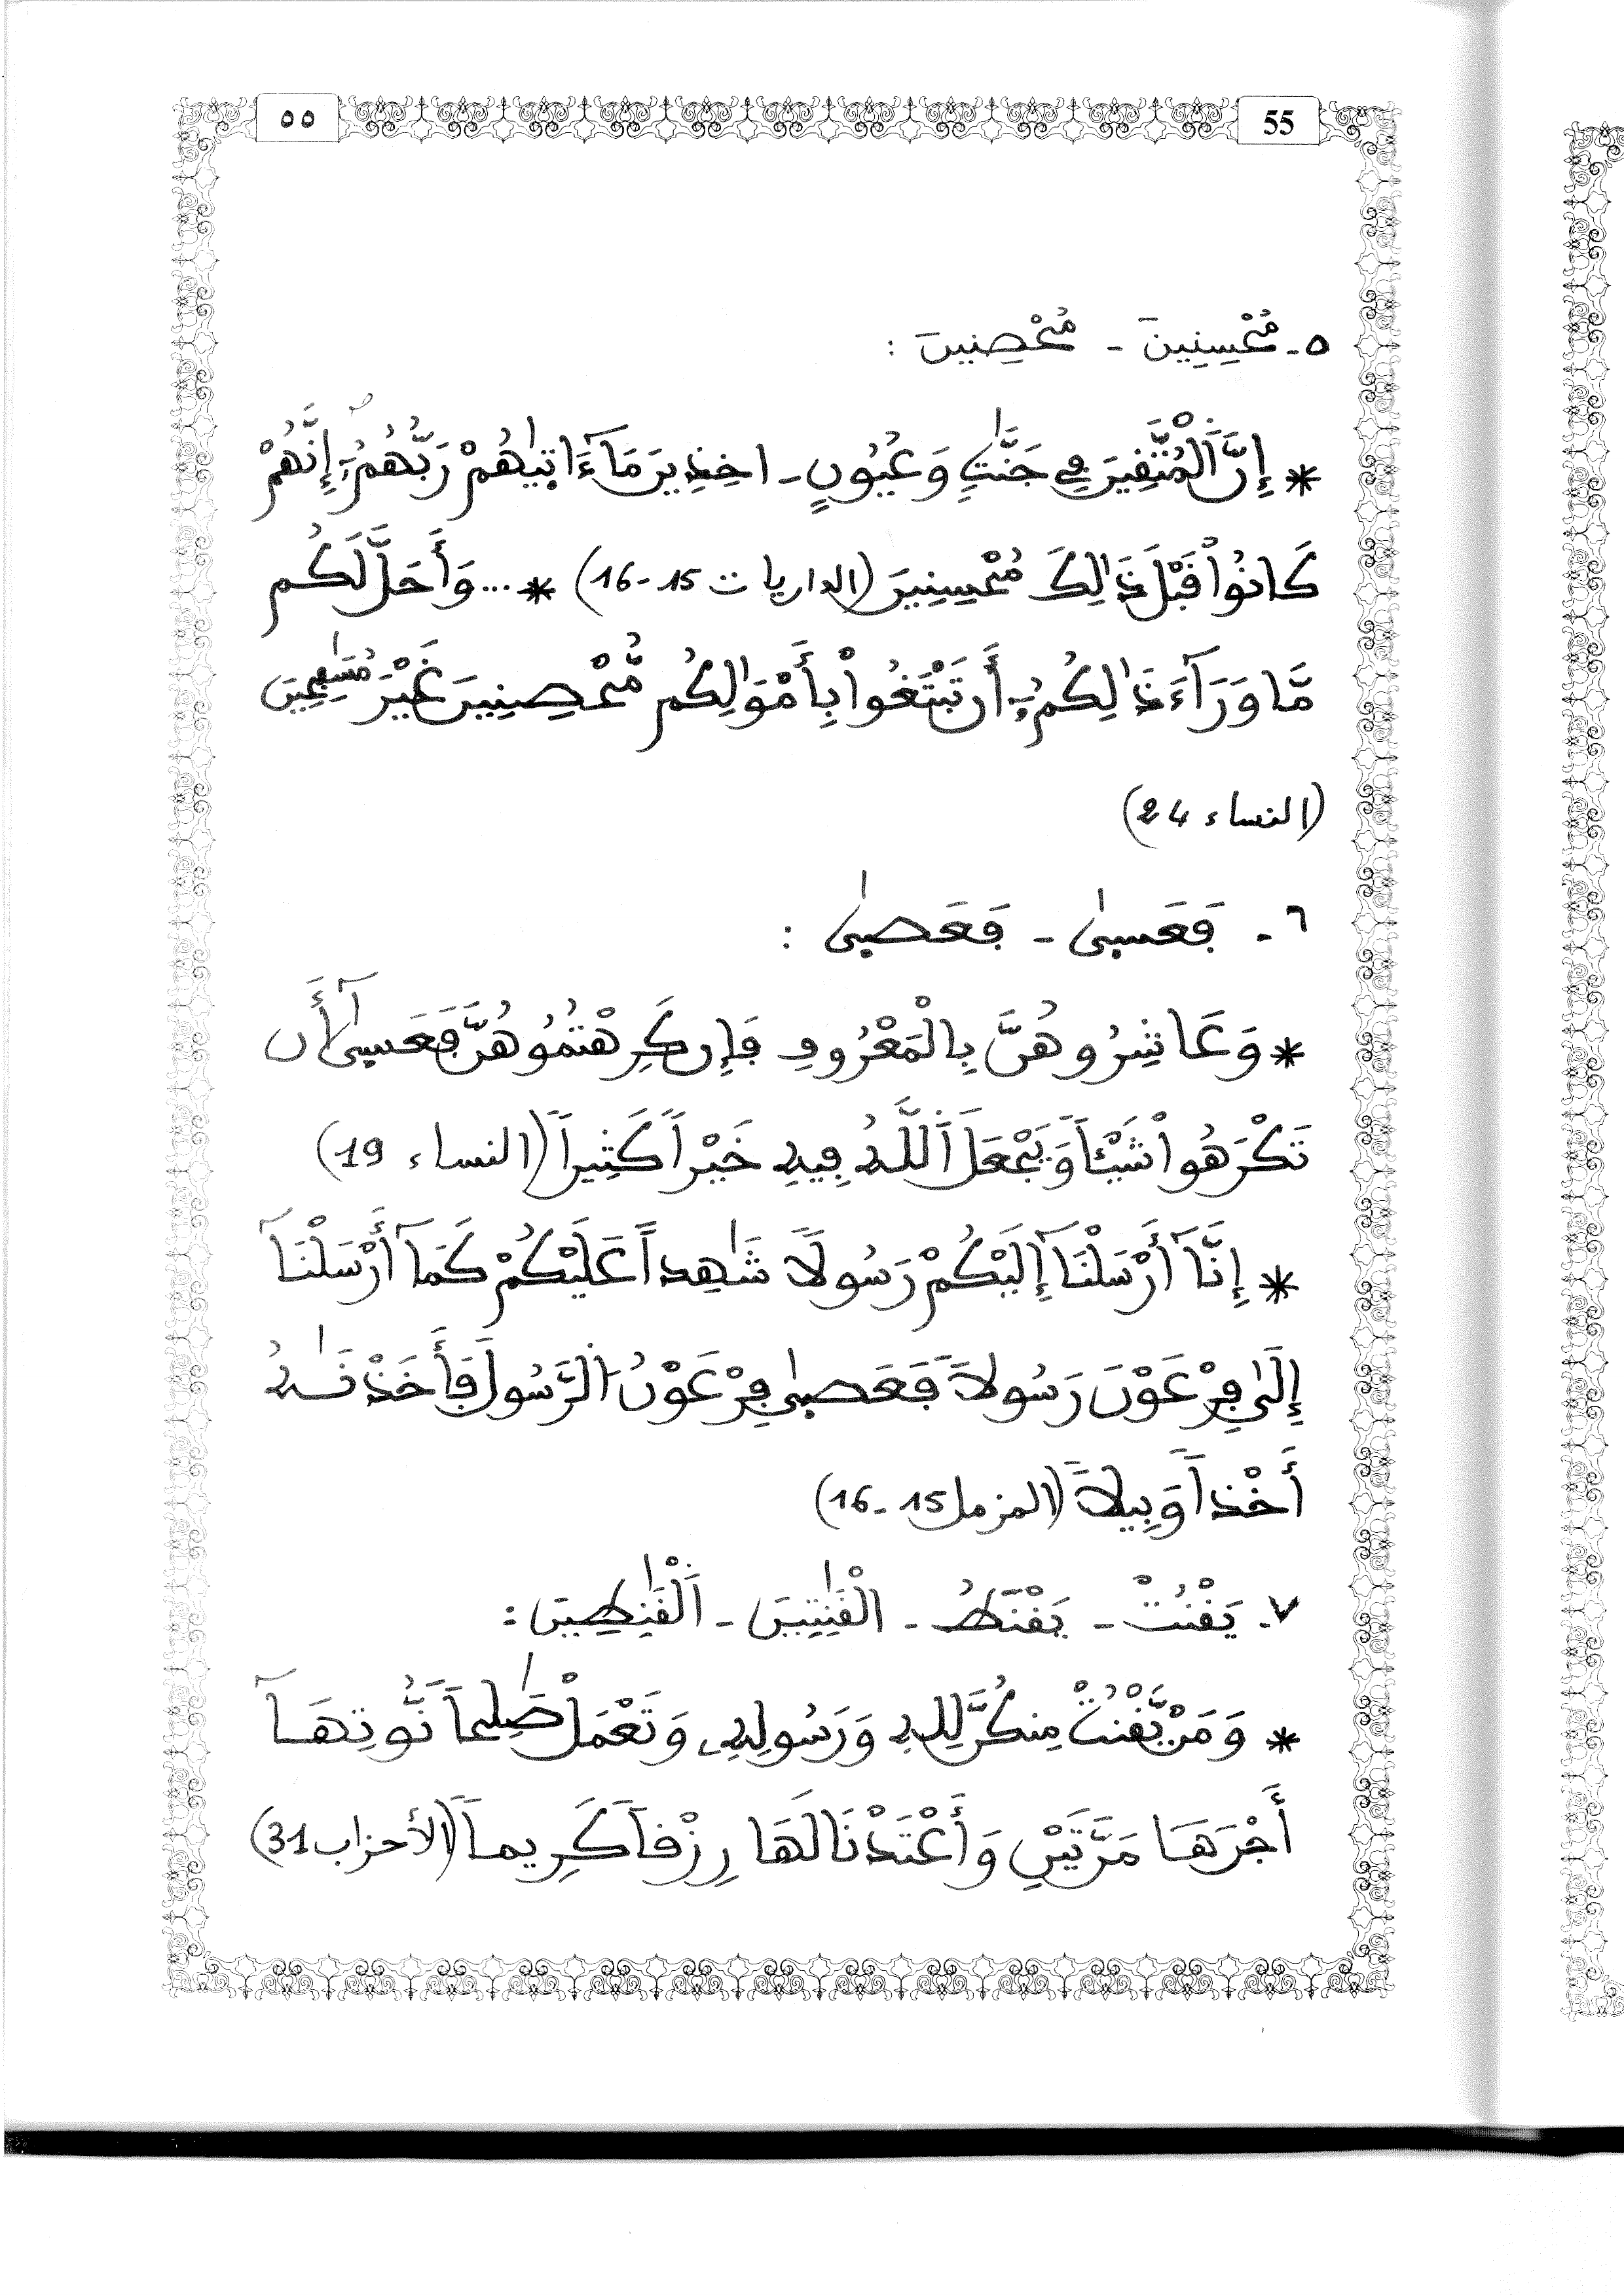 ٥٥ 55
٥- مُحْسِنِينَ - مُحْصِنِينَ :
* إِنَّ اَلْمُتَّقِينَ فِي جَنَّٰتٖ وَعُيُونٍ - اخِذِينَ مَآ ءَاتٜيٰهُمْ رَبُّهُمُۥٓ إِنَّهُمْ
كَانُواْ قَبْلَ ذَٰلِكَ مُحْسِنِينَ (الذاريات 15-16) * ... وَأَحَلَّ لَكُم
مَّا وَرَآءَ ذَٰلِكُمُۥٓ أَن تَبْتَغُواْ بِأَمْوَٰلِكُم مُّحْصِنِينَ غَيْرَ مُسَٰفِحِينَ
(النساء 24)
٦- فَعَسٜىٰ - فَعَصٜىٰ :
* وَعَاشِرُوهُنَّ بِالْمَعْرُوفِ فَإِن كَرِهْتُمُوهُنَّ فَعَسٜىٰٓ أَن
تَكْرَهُواْ شَيْـٔاً وَيَجْعَلَ اَللَّهُ فِيهِ خَيْراً كَثِيراً (النساء 19)
* إِنَّآ أَرْسَلْنَآ إِلَيْكُمْ رَسُولاً شَٰهِداً عَلَيْكُمْ كَمَآ أَرْسَلْنَآ
إِلَىٰ فِرْعَوْنَ رَسُولاً فَعَصٜىٰ فِرْعَوْنُ اَلرَّسُولَ فَأَخَذْنَٰهُ
أَخْذاً وَبِيلاً (المزمل 15-16)
٧- يَقْنُتْ - يَقْنَطُ - الْقَٰنِتِينَ - اَلْقَٰنِطِينَ :
* وَمَنْ يَّقْنُتْ مِنكُنَّ لِلهِ وَرَسُولِهِۦ وَتَعْمَلْ صَٰلِحاً نُّوتِهَآ
أَجْرَهَا مَرَّتَيْنِ وَأَعْتَدْنَا لَهَا رِزْقاً كَرِيماً (الأحزاب 31)